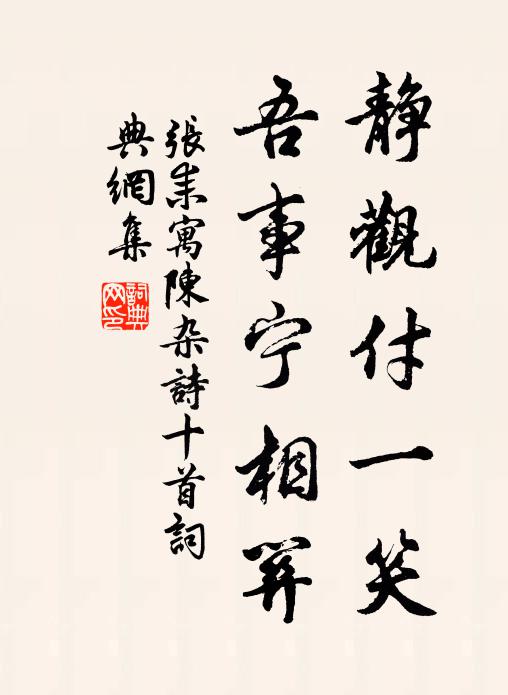 靜觀付一笑
吾事宁相關
張耒寓陳杂詩十首詞
典網集
詞典网印